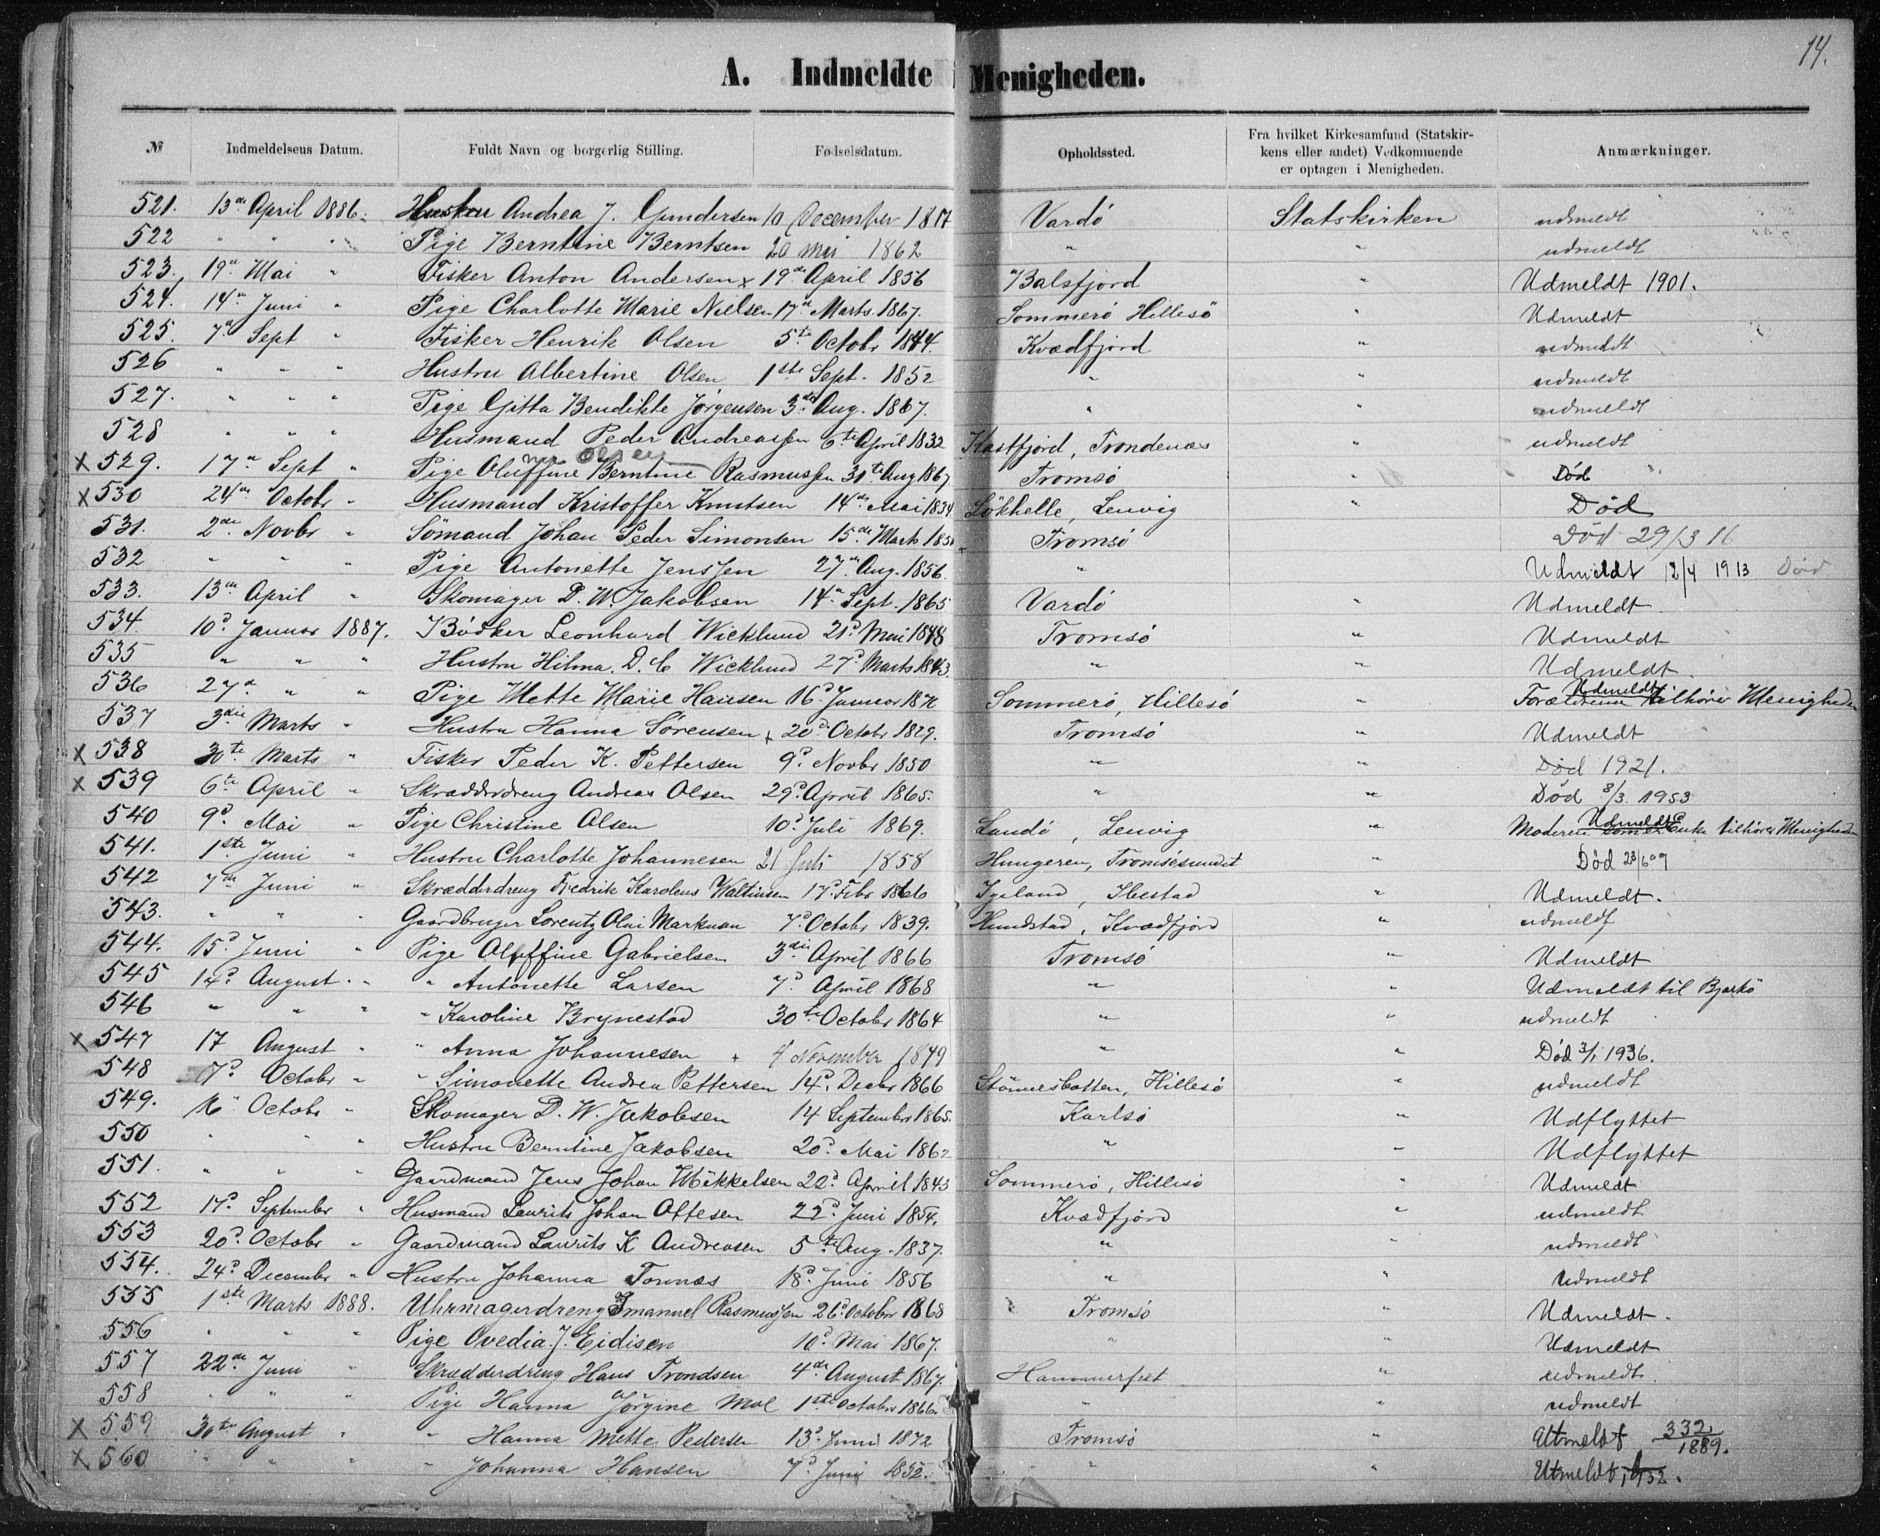 14.
A. Indmeldte i Menigheden.
№ Indmeldelsens Datum. Fuldt Navn og borgerlig Stilling. Fødselsdatum. Opholdssted. Fra hvilket Kirkesamfund (Statskirkens eller andet) Vedkommende er optagen i Menigheden. Anmærkninger.
521. 13de April 1886. Hustru Andrea J. Gundersen 10 December 1817 Vardö Statskirken udmeldt
522 " " " Pige Berntine Berntsen 20 mai 1862 " " udmeldt
523. 19de Mai " Fisker Anton Andersen x 19de April 1856 Balsfjord " Udmeldt 1901.
524. 14de Juni " Pige Charlotte Marie Nielsen 17de Marts 1867. Sommerö Hillesö " Udmeldt
525. 7de Sept " Fisker Henrik Olsen 5te Octobr 1844. Kvædfjord " udmeldt
526 " " " Hustru Albertine Olsen 1ste Sept. 1852 " " udmeldt
527. " " " Pige Gitta Bendikte Jörgensen 3de Aug. 1867. " " udmeldt
528 " " " Husmand Peder Andreassen 6te April 1832 Kastfjord, Trondenæs " udmeldt
x 529. 17de Sept " Pige Oluffine Berntine Rasmussen 31te Aug 1867 Tromsö " Död
nu Olsen
x 530 24de Octobr " Husmand Kristoffer Knutsen 14de Mai 1834 Lökhelle, Lenvig " Död
531. 2den Novbr " Sömand Johan Peder Simonsen 15de Marts Tromsö " Död 29/3 16
532 " " " Pige Antonette Jenssen 27de Aug. 1856. " " Udmeldt 12/4 1913 Död
533. 13de April " Skomager D. W. Jakobsen 14de Sept. 1865 Vardö " Udmeldt.
534. 10d. Januar 1887. Bödker Leonhard Wicklund 21d. Mai 1848 Tromsö " Udmeldt
535 " " " Hustru Hilma D. C. Wicklund 27d. Marts 1843 " " Udmeldt.
536 27d. " " Pige Mette Marie Hansen 16d. Januar Sommerö, Hillesö " Udmeldt Forældrene tilhører Menigheden
537 3die Marts " Hustru Hanna Sörensen + 20d. Octobr 1829. Tromsö " Udmeldt
x 538 30te Marts " Fisker Peder K. Pettersen 9d. Novbr 1850 " " Död 1921.
x 539 6te April " Skrædderdreng Andreas Olsen 29d. April 1865. " " Död 8/3. 1953
540 9d. Mai " Pige Christine Olsen 10d. Juli 1869. Sandö, Lenvig " Udmeldt Moderen som er Enke tilhører Menigheden
541. 1ste Juni " Hustru Charlotte Johannesen 21 Juli 1858 Hungeren, Tromsösundet " Död 28/6 09
542 7de Juni " Skrædderdreng Fredrik Karolius Waltinsen 17d. Febr 1866 Igeland, Ibestad " Udmeldt.
543. " " " Gaardbruger Lorentz Olai Markuan 7d. Octobr 1839. Hundstad, Kvædfjord " udmeldt
544. 15d. Juni " Pige Oluffine Gabrielsen 3die April 1866 Tromsö " Udmeldt
545 14d. August " " Antonette Larsen 7d. April 1868 " " Udmeldt til Bjarkö
546 " " " " Karoline Brynestad 30te Octobr 1864 " " udmeldt
x 547 17 August " " Anna Johannesen + 4 November 1849 " " Död 3/1 1936.
548 7d. Octobr " " Simonette Andrea Pettersen 14d. Decbr 1866 Stönnesbotten, Hillesö " udmeldt
549. 16 Octobr " Skomager D. W. Jakobsen 14 September 1865. Karlsö " Udflyttet
550 " " " Hustru Berntine Jakobsen 20d. Mai 1862 " " Udflyttet
551. " " " Gaardmand Jens Johan Mikkelsen 22d. April 1843 Sommerö, Hillesö " Udmeldt
552 17d. September " Husmand Laurits Johan Ottesen 22d. Juni 1854. Kvædfjord " udmeldt
553 20d. Octobr " Gaardmand Laurits K Andreasen 5te Aug. 1837. " " udmeldt
554. 24d. December " Hustru Johanna Tornæs 18d. Juni 1856 " " Udmeldt
555 1ste Marts 1888. Uhrmagerdreng Emanuel Rasmussen 26d. October 1868 Tromsö " Udmeldt.
556 " " " Pige Ovedia J. Eidisen 10d. Mai 1867. " " Udmeldt
557 22de Juni " Skrædderdreng Hans Trondsen 4de August 1867 Hammerfest " udmeldt.
558 " " " Pige Hanna Jörgine Mol 1ste October 1866. " " udmeldt
x 559 30te August " " Hanna Mette Pedersen 13d. Juni 1872 Tromsö " Utmeldt 332/1889.
x 560 " " " " Johanna Hansen 7d. Juni 1852. " " Utmeldt,